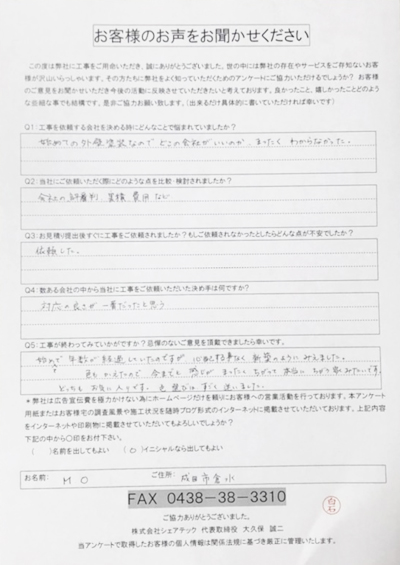 お客様のお声をお聞かせください
この度は弊社に工事をご用命いただき、誠にありがとうございました。世の中には弊社の存在やサービスをご存知ないお客
様が沢山いらっしゃいます。その方たちに弊社をよく知っていただくためのアンケートにご協力いただけるでしょうか? お客様
のご意見をお聞かせいただき今後の活動に反映させていただきたいと考えております。良かったこと、嬉しかったことどのよう
な些細な事でも結構です。是非ご協力お願い致します。(出来るだけ具体的に書いていただければ幸いです)
Q1:工事を依頼する会社を決める時にどんなことで悩まれていましたか?
始めての外壁塗装なので どこの会社がいいのか、まったく わからなかった。
Q2:当社にご依頼いただく際にどのような点を比較・検討されましたか?
会社の評判、実積 費用 など
Q3:お見積り提出後すぐに工事をご依頼されましたか?もしご依頼されなかったとしたらどんな点が不安でしたか?
依頼した。
Q4:数ある会社の中から当社に工事をご依頼いただいた決め手は何ですか?
対応の良さが 一番だったと思う
Q5:工事が終わってみていかがですか?忌憚のないご意見を頂戴できましたら幸いです。
始めて 年数が 経過していたのですが 心配する事なく 新築のようにみえました。
色も かえたので 今までと 感じが まったく ちがって 本当に ちがう家みたいです。
とっても お気に入りです。色選びは すごく 迷いました。
*弊社は広告宣伝費を極力かけない為にホームページだけを頼りにお客様への営業活動を行っております。本アンケート
用紙またはお客様宅の調査風景や施工状況を随時ブログ形式のインターネットに掲載させていただいております。上記内容
をインターネットや印刷物に掲載させていただいてもよろしいでしょうか?
下記の中から〇印をお付下さい。
( )名前を出してもよい (O)イニシャルなら出してもよい
お名前: M O ご住所: 成田市
FAX 0438-38-3310
白石
ご協力ありがとうございました。
株式会社シェアテック 代表取締役 大久保 誠二
当アンケートで取得したお客様の個人情報は関係法規に基づき厳正に管理いたします。